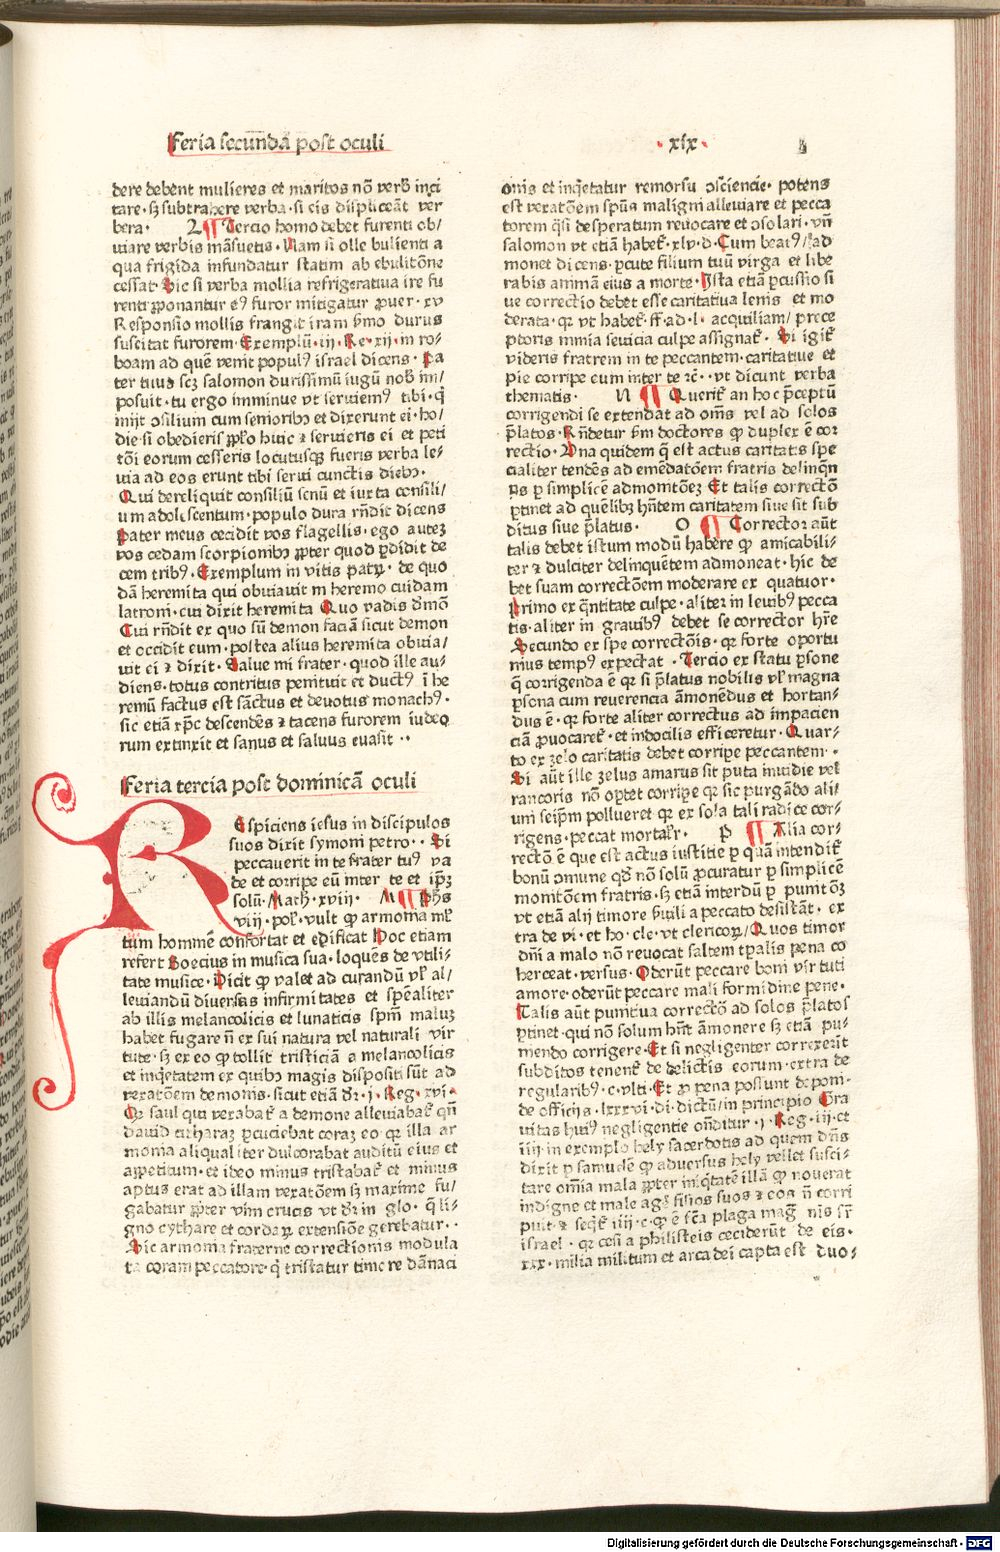 Feria secunda post oculi
· xix ·
dere debent mulieres et maritos nō verb̄ inci
tare · sʒ subtrahere verba · si eis displiceāt ver
bera · L ¶ Tercio homo debet furenti ob/
uiare verbis māsuetis · Nam si olle bulienti a
qua frigida infundatur statim ab ebulitōne
cessat · Sic si verba mollia refrigeratiua ire fu
renti ꝓponantur eꝰ furor mitigatur ꝓuer · xv
Responsio mollis frangit iram ẜmo durus
suscitat furorem · Exemplū · iij · Re · xij · in ro⸗
boam ad quē venit populꝰ israel dicens · Pa
ter tuus scʒ salomon durissimū iugū nob̄ im/
posuit · tu ergo imminue vt seruiemꝰ tibi · q̄
inijt ↄsilium cum senioribꝰ et dixerunt ei · ho/
die si obedieris ꝓpl̄o huic ⁊ seruieris ei et peti
tōi eorum cesseris locutusqʒ fueris verba le⸗
uia ad eos erunt tibi serui cunctis diebꝰ ·
Qui dereliquit consiliū senū et iuxta consili/
um adolescentum · populo dura rn̄dit dicens
Pater meus cecidit vos flagellis · ego auteʒ
vos cedam scorpionibꝰ ꝓpter quod ꝑdidit de
cem tribꝰ · Exemplum in vitis patꝝ · de quo
dā heremita qui obuiauit in heremo cuidam
latroni · cui dixit heremita Quo vadis d̄mō
Cui rn̄dit ex quo sū demon faciā sicut demon
et occidit eum · postea alius heremita obuia/
uit ei ⁊ dixit · Salue mi frater · quod ille au⸗
diens · totus contritus penituit et ductꝰ ī he
remū factus est sāctus et deuotus monachꝰ ·
sic etiā xp̄c descendēs ⁊ tacens furorem iudeo
rum extinxit et sanus et saluus euasit · ·
Feria tercia post dominicā oculi
REspiciens iesus in discipulos
suos dixit symoni petro · · Si
peccauerit in te frater tuꝰ va
de et corripe eū inter te et ip̄ʒ
solū · Math · xviij · M ¶ Ph̄s
viij · pol̄ · vult ꝙ armonia ml̄
tum hominē confortat et edificat Hoc etiam
refert Boecius in musica sua · loquēs de vtili⸗
tate musice · Dicit ꝙ valet ad curandū vl̄ al/
leuiandū diuersas infirmitates et spēaliter
ab illis melancolicis et lunaticis spm̄ maluʒ
habet fugare n̄ ex sui natura vel naturali vir
tute · sʒ ex eo ꝙ tollit tristiciā a melancolicis
et inq̄etatem ex quibꝰ magis dispositi sūt ad
vexatōem demonis · sicut etiā dr̄ · j · Reg · xvi ·
Qr̄ saul qui vexabat̄ a demone alleuiabat̄ qn̄
dauid citharaʒ ꝑcuciebat coraʒ eo qꝛ illa ar
monia aliqualiter dulcorabat auditū eius et
appetitum · et ideo minus tristabat̄ et minus
aptus erat ad illam vexatōem sʒ maxime fu/
gabatur ꝓpter vim crucis vt dr̄ in glo · q̄ li⸗
gno cythare et cordaꝝ extensiōe gerebatur · ·
Sic armonia fraterne correctionis modula
ta coram peccatore · q̄ tristatur timore dānaci
onis et inq̄etatur remorsu ↄsciencie · potens
est vexatōem spūs maligni alleuiare et pecca
torem q̄si desperatum reuocare et ↄsolari · vn̄
salomon vt etiā habet̄ · xlv · d · Cum beatꝰ / ad
monet dicens · ꝑcute filium tuū virga et libe
rabis animā eius a morte · Ista etiā ꝑcussio si
ue correctio debet esse caritatiua lenis et mo
derata · qꝛ vt habet̄ · ff · ad · l · acquiliam / prece
ptoris nimia seuicia culpe assignat̄ · Si igit̄
videris fratrem in te peccantem · caritatiue et
pie corripe eum inter te ⁊c̄ · · vt dicunt verba
thematis · N ¶ Querit̄ an hoc p̄ceptū
corrigendi se extendat ad om̄s vel ad solos
p̄latos · Rn̄detur ẜm doctores ꝙ duplex ē cor
rectio · Una quidem q̄ est actus caritatis spe
cialiter tendēs ad emēdatōem fratris delinqn̄
tis ꝑ simplicē admonitōeʒ Et talis correctō
ꝑtinet ad quēlibʒ hn̄tem caritatem siue sit sub
ditus siue p̄latus · O ¶ Corrector aūt
talis debet istum modū habere ꝙ amicabili⸗
ter ⁊ dulciter delinquētem admoneat · hic de
bet suam correctōem moderare ex quatuor ·
Primo ex q̄ntitate culpe · aliter in leuibꝰ pecca
tis · aliter in grauibꝰ debet se corrector hr̄e
Secundo ex spe correctōis · qꝛ forte oportu
nius tempꝰ expectat · Tercio ex statu ꝑsone
q̄ corrigenda ē qꝛ si p̄latus nobilis vl̄ magna
ꝑsona cum reuerencia āmonēdus et hortan⸗
dus ē · qꝛ forte aliter correctus ad impacien
ciā ꝓuocaret̄ · et indocilis efficeretur · Quar⸗
to ex zelo caritatis debet corripe peccantem ·
Si aūt ille zelus amarus sit puta inuidie vel
rancoris nō oꝑtet corripe qꝛ sic purgādo ali⸗
um seip̄m pollueret qꝛ ex sola tali radice cor⸗
rigens · peccat mortal̄r · P ¶ Alia cor⸗
rectō ē que est actus iusticie ꝑ quā intendit̄
bonū ↄmune qd̄ nō solū ꝓcuratur ꝑ simplicē
monitōem fratris · sʒ etiā interdū ꝑ punitōʒ
vt etiā alij timore ꝑculi a peccato desistāt · ex
tra de vi · et ho · cle · vt clericoꝝ / Quos timor
dn̄i a malo nō reuocat saltem tꝑalis pena co
herceat · versus · Oderūt peccare boni vir tuti
amore · oderūt peccare mali formidine pene ·
Talis aūt punitiua correctō ad solos p̄latos
ꝑtinet · qui nō solum hn̄t āmonere sʒ etiā pu⸗
niendo corrigere · Et si negligenter correxerit
subditos tenent̄ de delictis eorum · extra de
regularibꝰ · c · vlti · Et ꝓ pena possunt depon⸗
de officijs · lxxxvi · di · dictū / in principio Gra
uitas huiꝰ negligentie on̄ditur · j · Reg · iij · et
iiij · in exemplo hely sacerdotis ad quem dn̄s
dixit ꝑ samuelē ꝙ aduersus hely vellet susci⸗
tare om̄ia mala ꝓpter iniq̄tatē illā ꝙ nouerat
indigne et male age filios suos ⁊ eos n̄ corri
puit · ⁊ seqt̄ · iiij · c · ꝙ ē fc̄a plaga maḡ nis sr̄
israel · qꝛ cesi a philisteis ceciderūt de eis ·
xxx · milia militum et arca dei capta est duo⸗
Digitalisierung gefördert durch die Deutsche Forschungsgemeinschaft · DFG